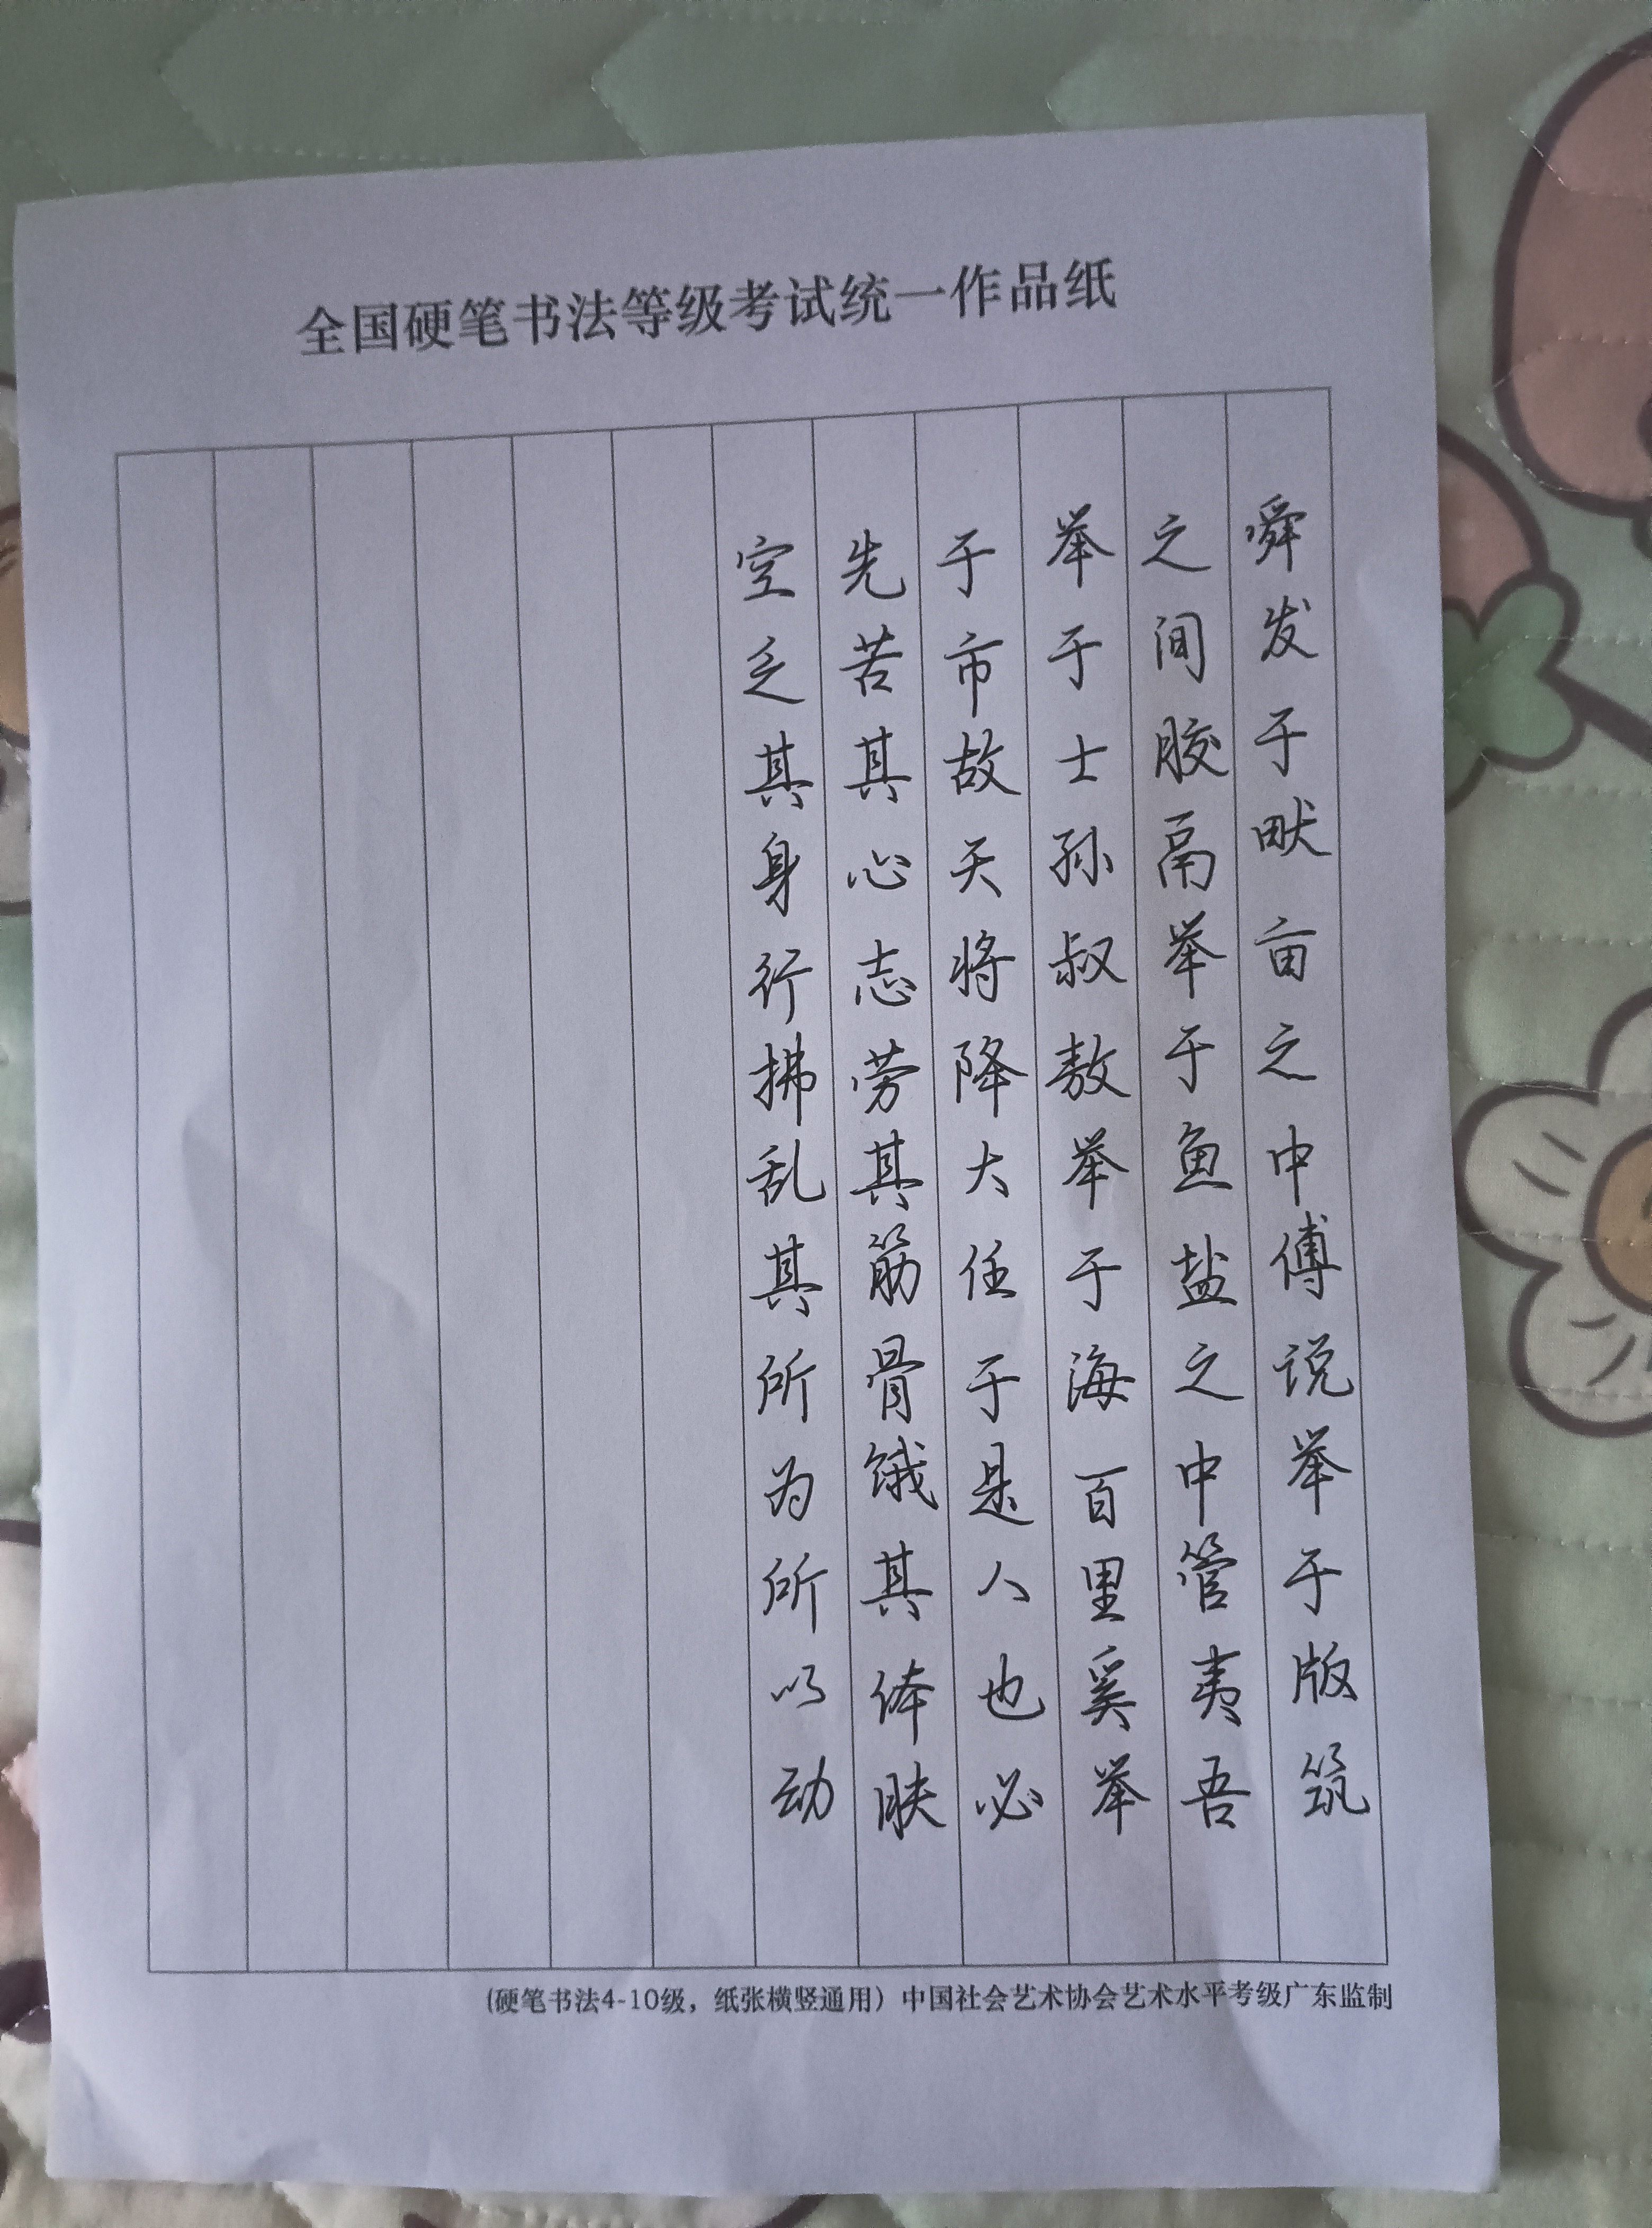 全国硬笔书法等级考试统一作品纸
舜发于畎亩之中傅说举于版筑
之间胶鬲举于鱼盐之中管夷吾
举于士孙叔敖举于海百里奚举
于市故天将降大任于是人也必
先苦其心志劳其筋骨饿其体肤
空乏其身行拂乱其所为所以动
(硬笔书法4-10级，纸张横竖通用）中国社会艺术协会艺术水平考级广东监制